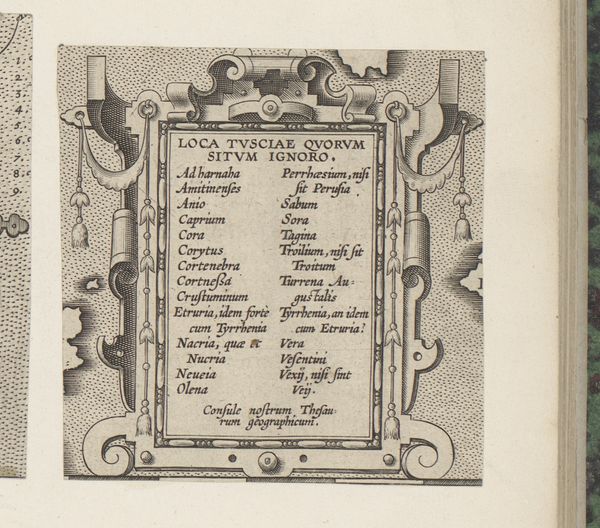 1
2
3
4
5
6
7
8
9
LOCA TVSCIAE QVORVM
SITVM IGNORO.
Ad harnaha
Amitinenses
Anio
Caprium
Cora
Corytus
Cortenebra
Cortneßa
Crustuminum
Etruria, idem fortè
cum Tyrrhenia
Nacria, quæ et
Nucria
Neueia
Olena
Perrhæsium, nisi
sit Perusia
Sabum
Sora
Tagina
Troilium, nisi sit
Troitum
Turrena Au-
gustalis
Tyrrhenia, an idem
cum Etruria?
Vera
Vesentini
Vexij, nisi sint
Veij.
Consule nostrum Thesau-
rum geographicum.